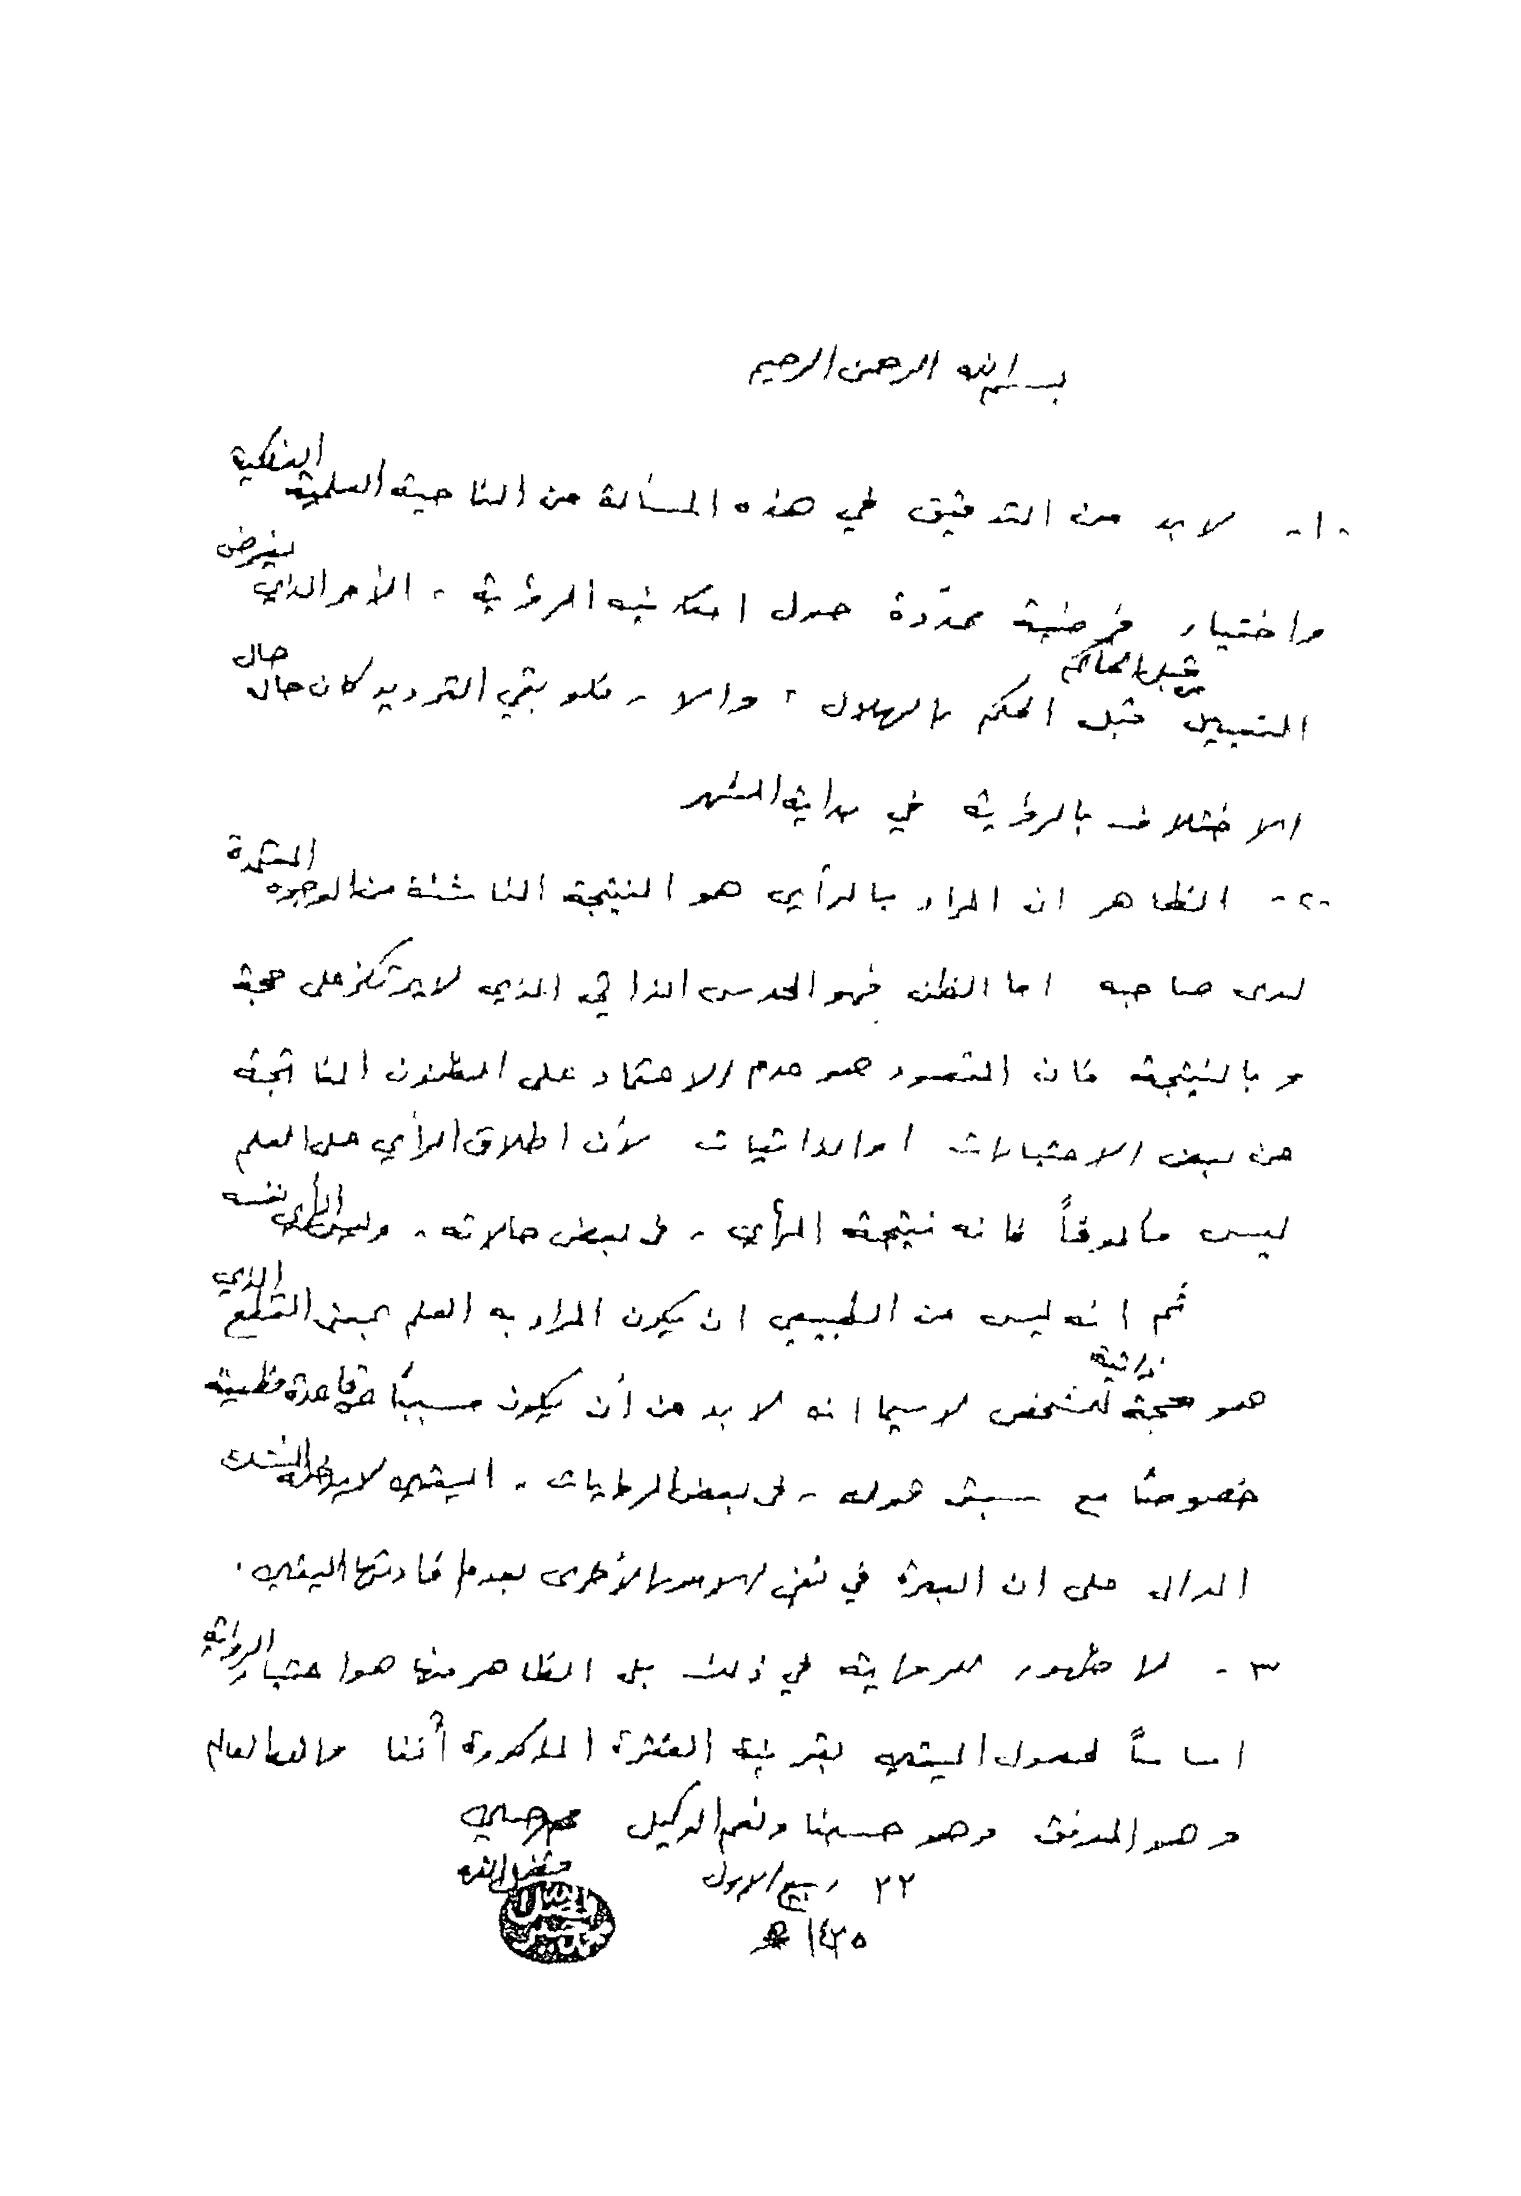 بسم الله الرحمن الرحيم
-١- لا بد من التدقيق في هذه المسألة من الناحية العلمية الفلكية
واختيار فرضية محدّدة حول امكانية الرؤية - الأمر الذي يفرض
التعيين قبل الحكم بالهلال قبل الحاكم، والا - فلو بقي الترديد كان حاله حال
الاختلاف بالرؤية في بداية الشهر
-٢- الظاهر ان المراد بالرأي هو النتيجة الناشئة من الوجوه
لدى صاحبه اما الظن فهو الحدس الذاتي الذي لا يرتكز على حجة
وبالنتيجة فان المقصود هو عدم الاعتماد على الظنون الناتجة
من بعض الاعتبارات او الذاتيات لأن اطلاق الرأي على العلم
ليس مألوفاً فانه نتيجة الرأي - في بعض حالاته - وليس الرأي نفسه
ثم انه ليس من الطبيعي ان يكون المراد به العلم بمعنى القطع الذي
هو حجة ذاتية للشخص لا سيما انه لا بد من أن يكون مسبباً قاعدة
خصوصاً مع سبق قوله - في بعض الروايات - اليقين لا يدخله الشك
الدال على ان العبرة في نفي الأخرى بعدم افادتها اليقين.
٣- لا ظهور للرواية في ذلك بل الظاهر منها هو اعتبار الرواية
اساساً لحصول اليقين بقرينة الفقرة المذكورة أنفا والله العالم
وهو الموفق وهو حسبنا ونعم الوكيل محمد حسين
فضل الله
٢٢ ربيع الاول
١٤٢٥ هـ